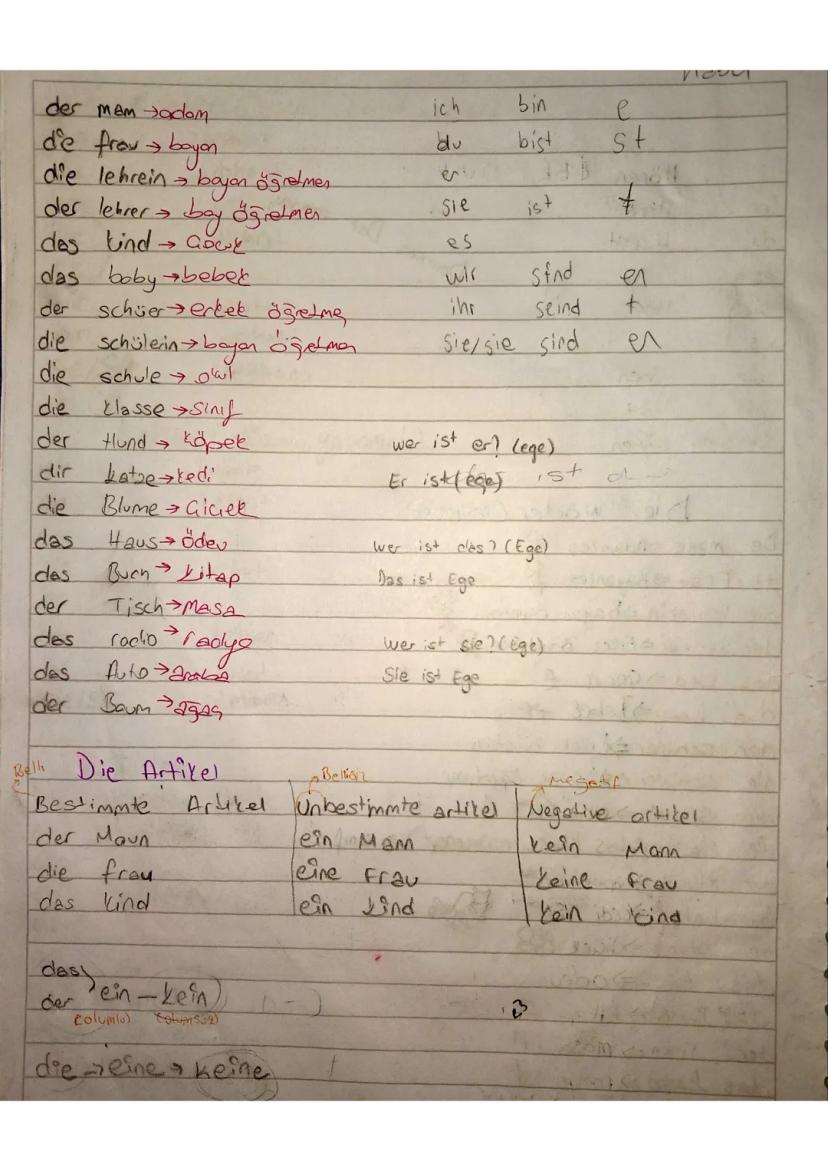 der mam → adam ich bin e
die frau → bayan du bist st
die lehrein → bayan öğretmen er
der lehrer → bay öğretmen sie ist t
das kind → çocuk es
das baby → bebek wir sind en
der schüer → erkek öğretme ihr seind t
die schülein → bayan öğretmen sie/sie sind en
die schule → okul
die klasse → sınıf
der Hund → köpek wer ist er? (ege)
dir katze → kedi Er ist (ege) ist
die Blume → Çiçek
das Haus → ödev wer ist das? (Ege)
das Buch → kitap Das ist Ege
der Tisch → Masa
das radio → radyo wer ist sie? (Ege)
das Auto → araba Sie ist Ege
der Baum → ağaç
Belli Die Artikel Belirsiz negatif
Bestimmte Artikel Unbestimmte artikel Negative artikel
der Maun ein Mann kein Mann
die frau eine Frau keine frau
das kind ein kind kein kind
das
der ein – kein
(olumlu) (olumsuz)
die → eine → keine